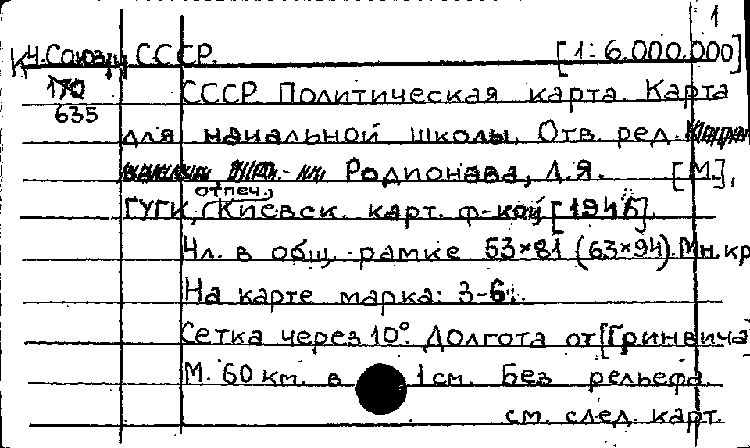 1
К Ч. Союз/ц СССР. [1: 6.000.000]
170
635
СССР. Политическая карта. Карта
для начальной школы. Отв. ред.
Родионава, Л.Я. [М.],
ГУГК, (отпеч., Киевск. карт. ф-кой [194
4л. в общ. рамке 53×81 (63×94). Мн. кр
На карте марка: 3-6
Сетка через 10°. Долгота от [Гринвича]
М. 60 км. в 1 см. Без рельефа.
см. след. карт.